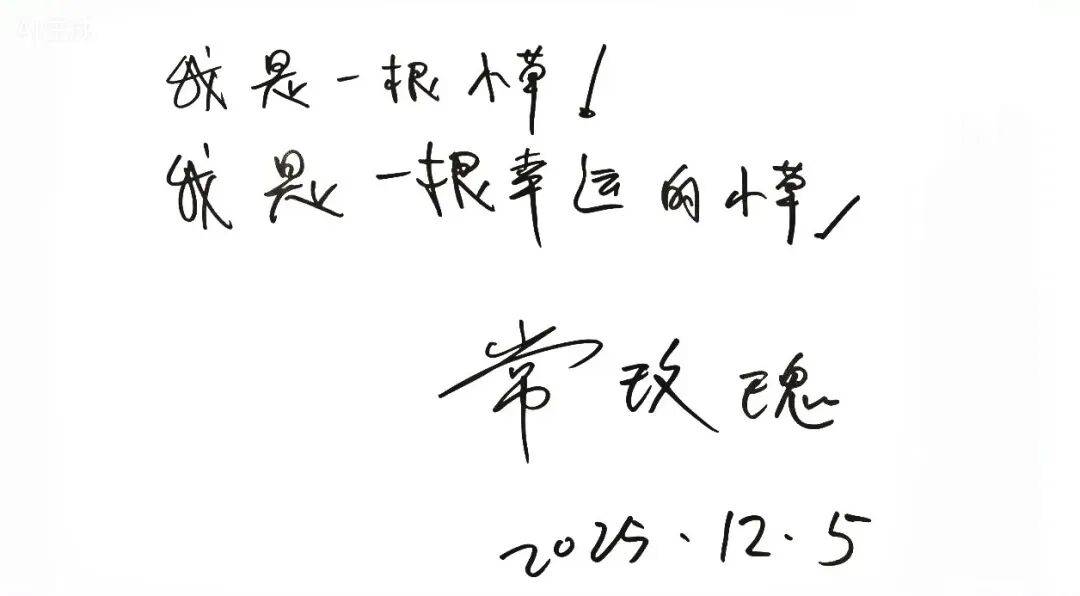 我是一根小草！
我是一根幸运的小草！
常玫瑰
2025.12.5